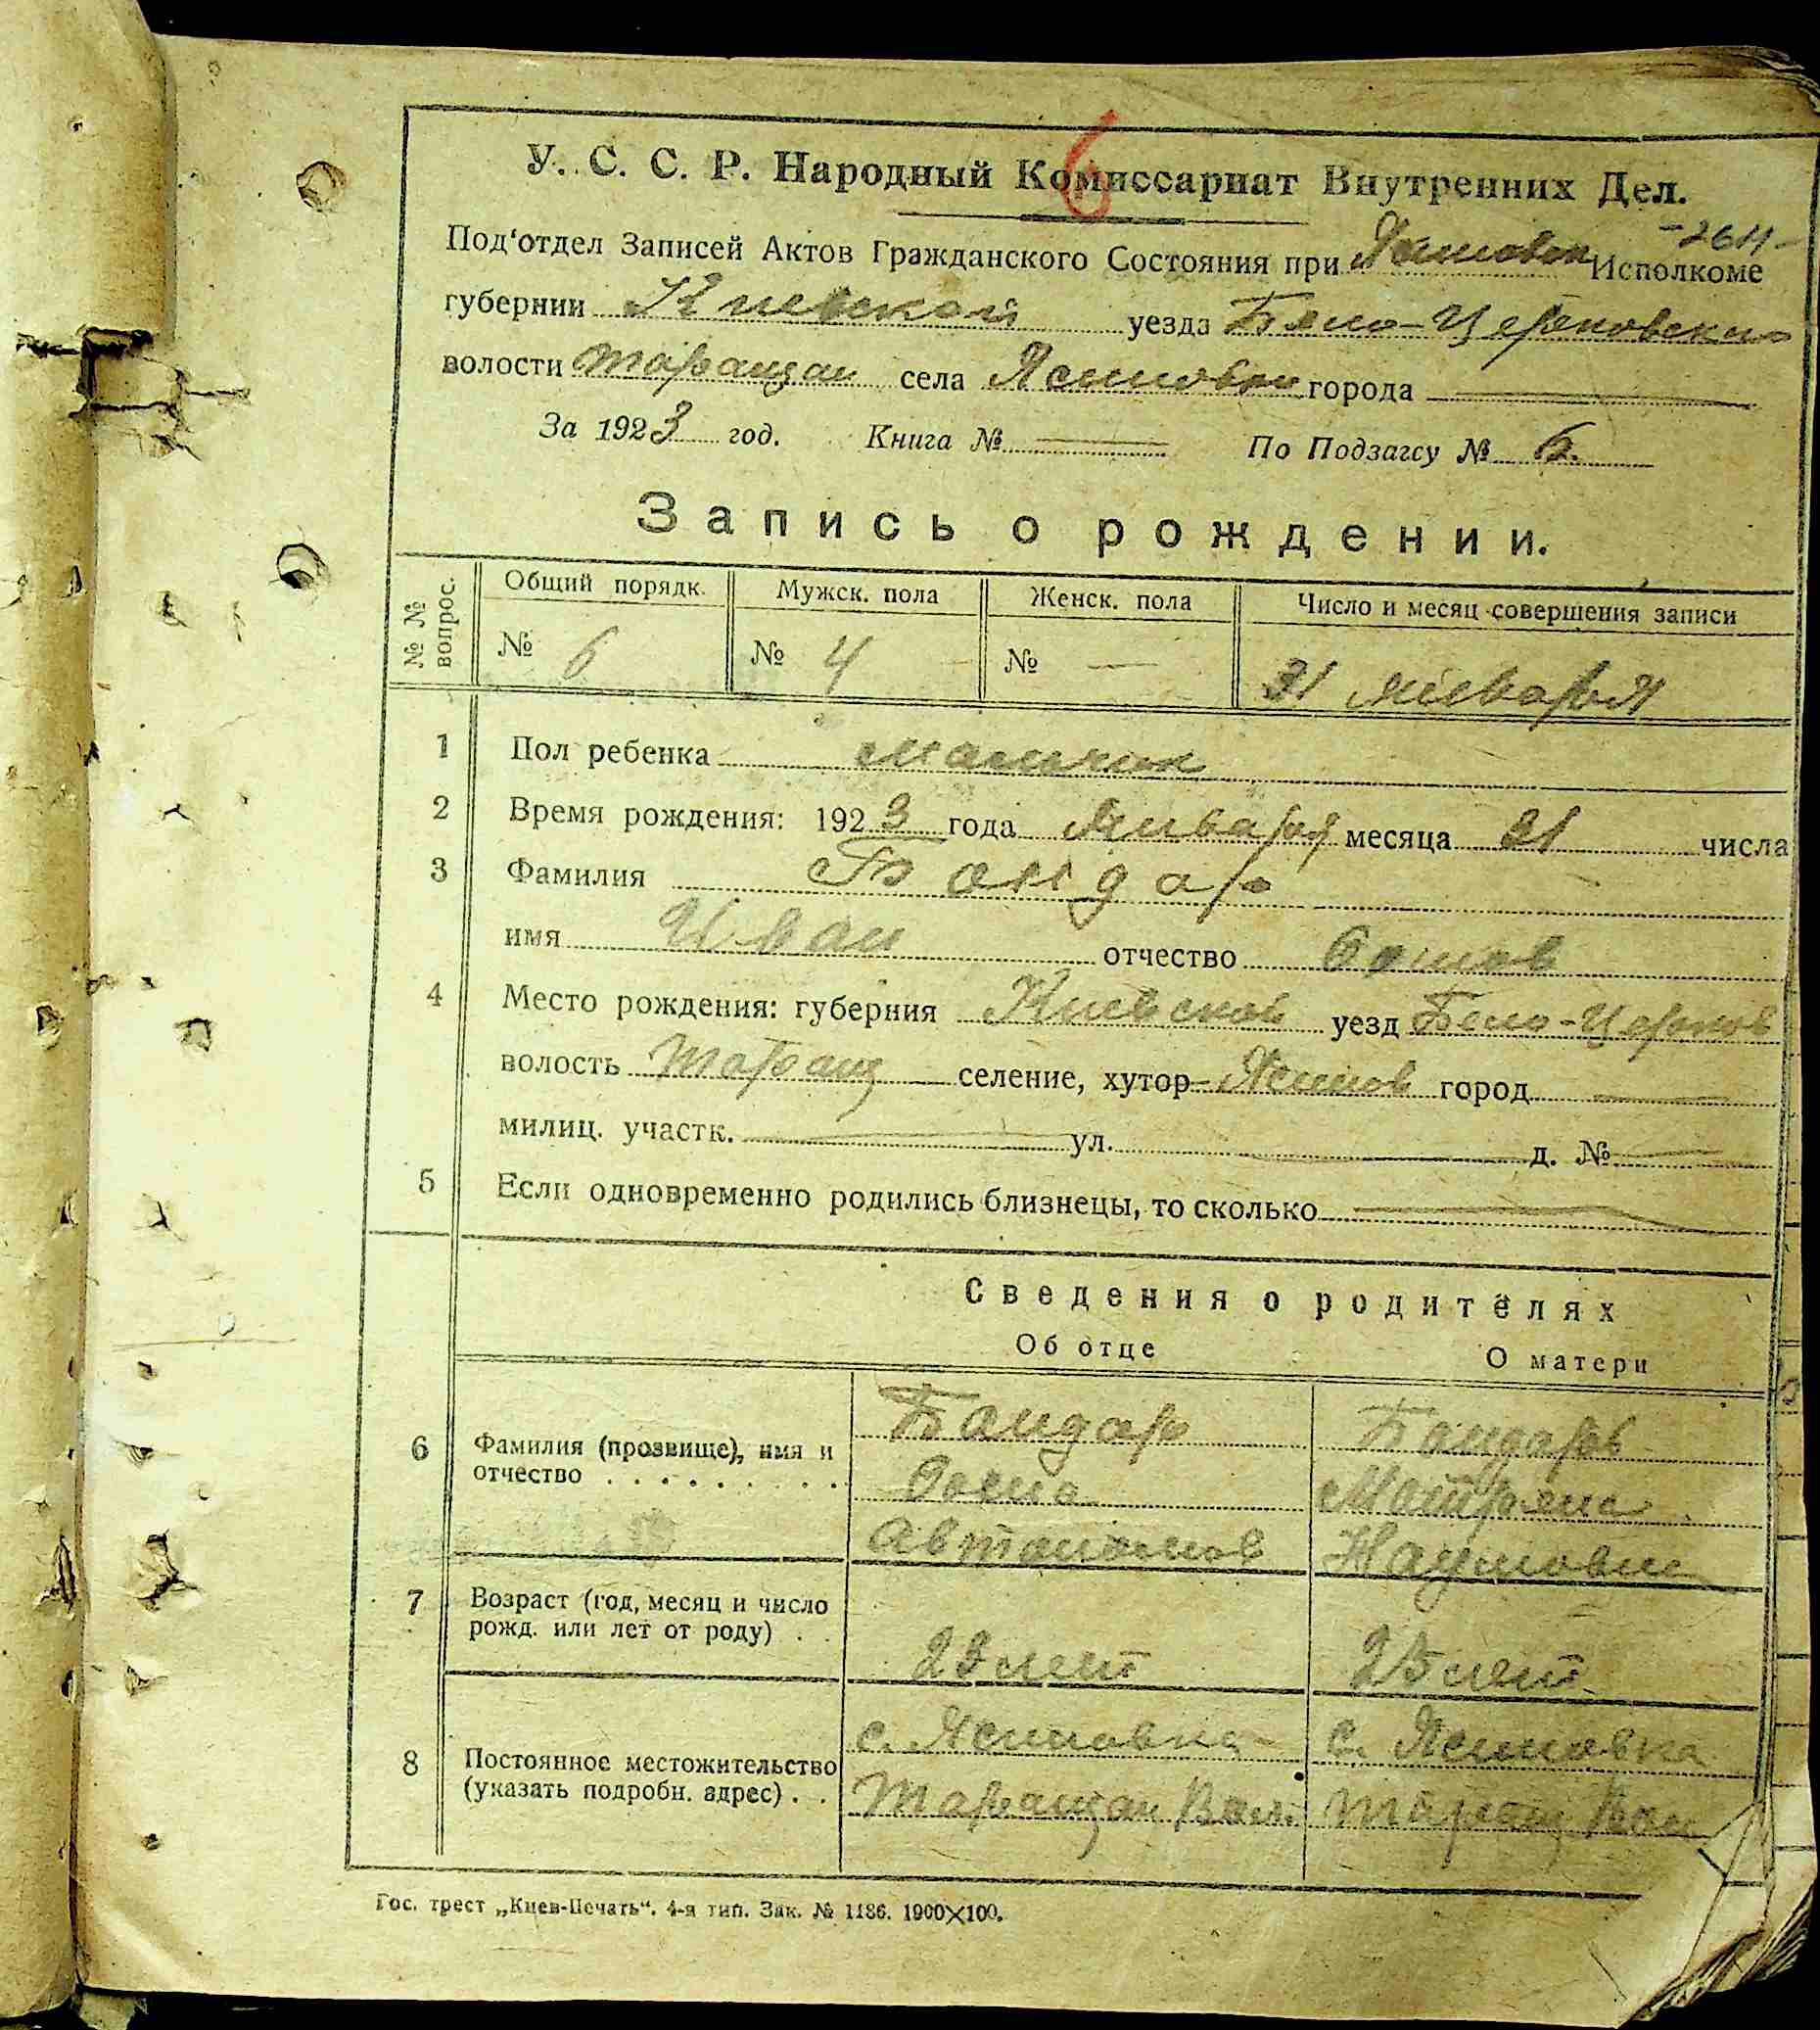 6
У. С. С. Р. Народный Комиссариат Внутренних Дел.
-2611-
Под'отдел Записей Актов Гражданского Состояния при Исполкоме
губернии Киевской уезда Бело-Церковского
волости Таращан села Ясиновки города
За 1923 год. Книга № По Подзагсу № 6.
Запись о рождении.
№ № вопрос.
Общий порядк. Мужск. пола Женск. пола Число и месяц совершения записи
№ 6 № 4 № — 31 января
1 Пол ребенка Мальчик
2 Время рождения: 1923 года Января месяца числа
3 Фамилия Бондар
имя Иван отчество
4 Место рождения: губерния Киевской уезд Бело-Церков
волость Таращ селение, хутор Ясинов город
милиц. участк. ул. д. №
5 Если одновременно родились близнецы, то сколько
Сведения о родителях
Об отце О матери
6 Фамилия (прозвище), имя и отчество Бандар Бандарь
Матрена
Автономов Наумовна
7 Возраст (год, месяц и число рожд. или лет от роду) 23 лет 25 лет
8 Постоянное местожительство (указать подробн. адрес) с. Ясиновка с. Ясиновка
Таращан Вол. Таращ Вол
Гос. трест „Киев-Печать". 4-я тип. Зак. № 1186. 1900×100.